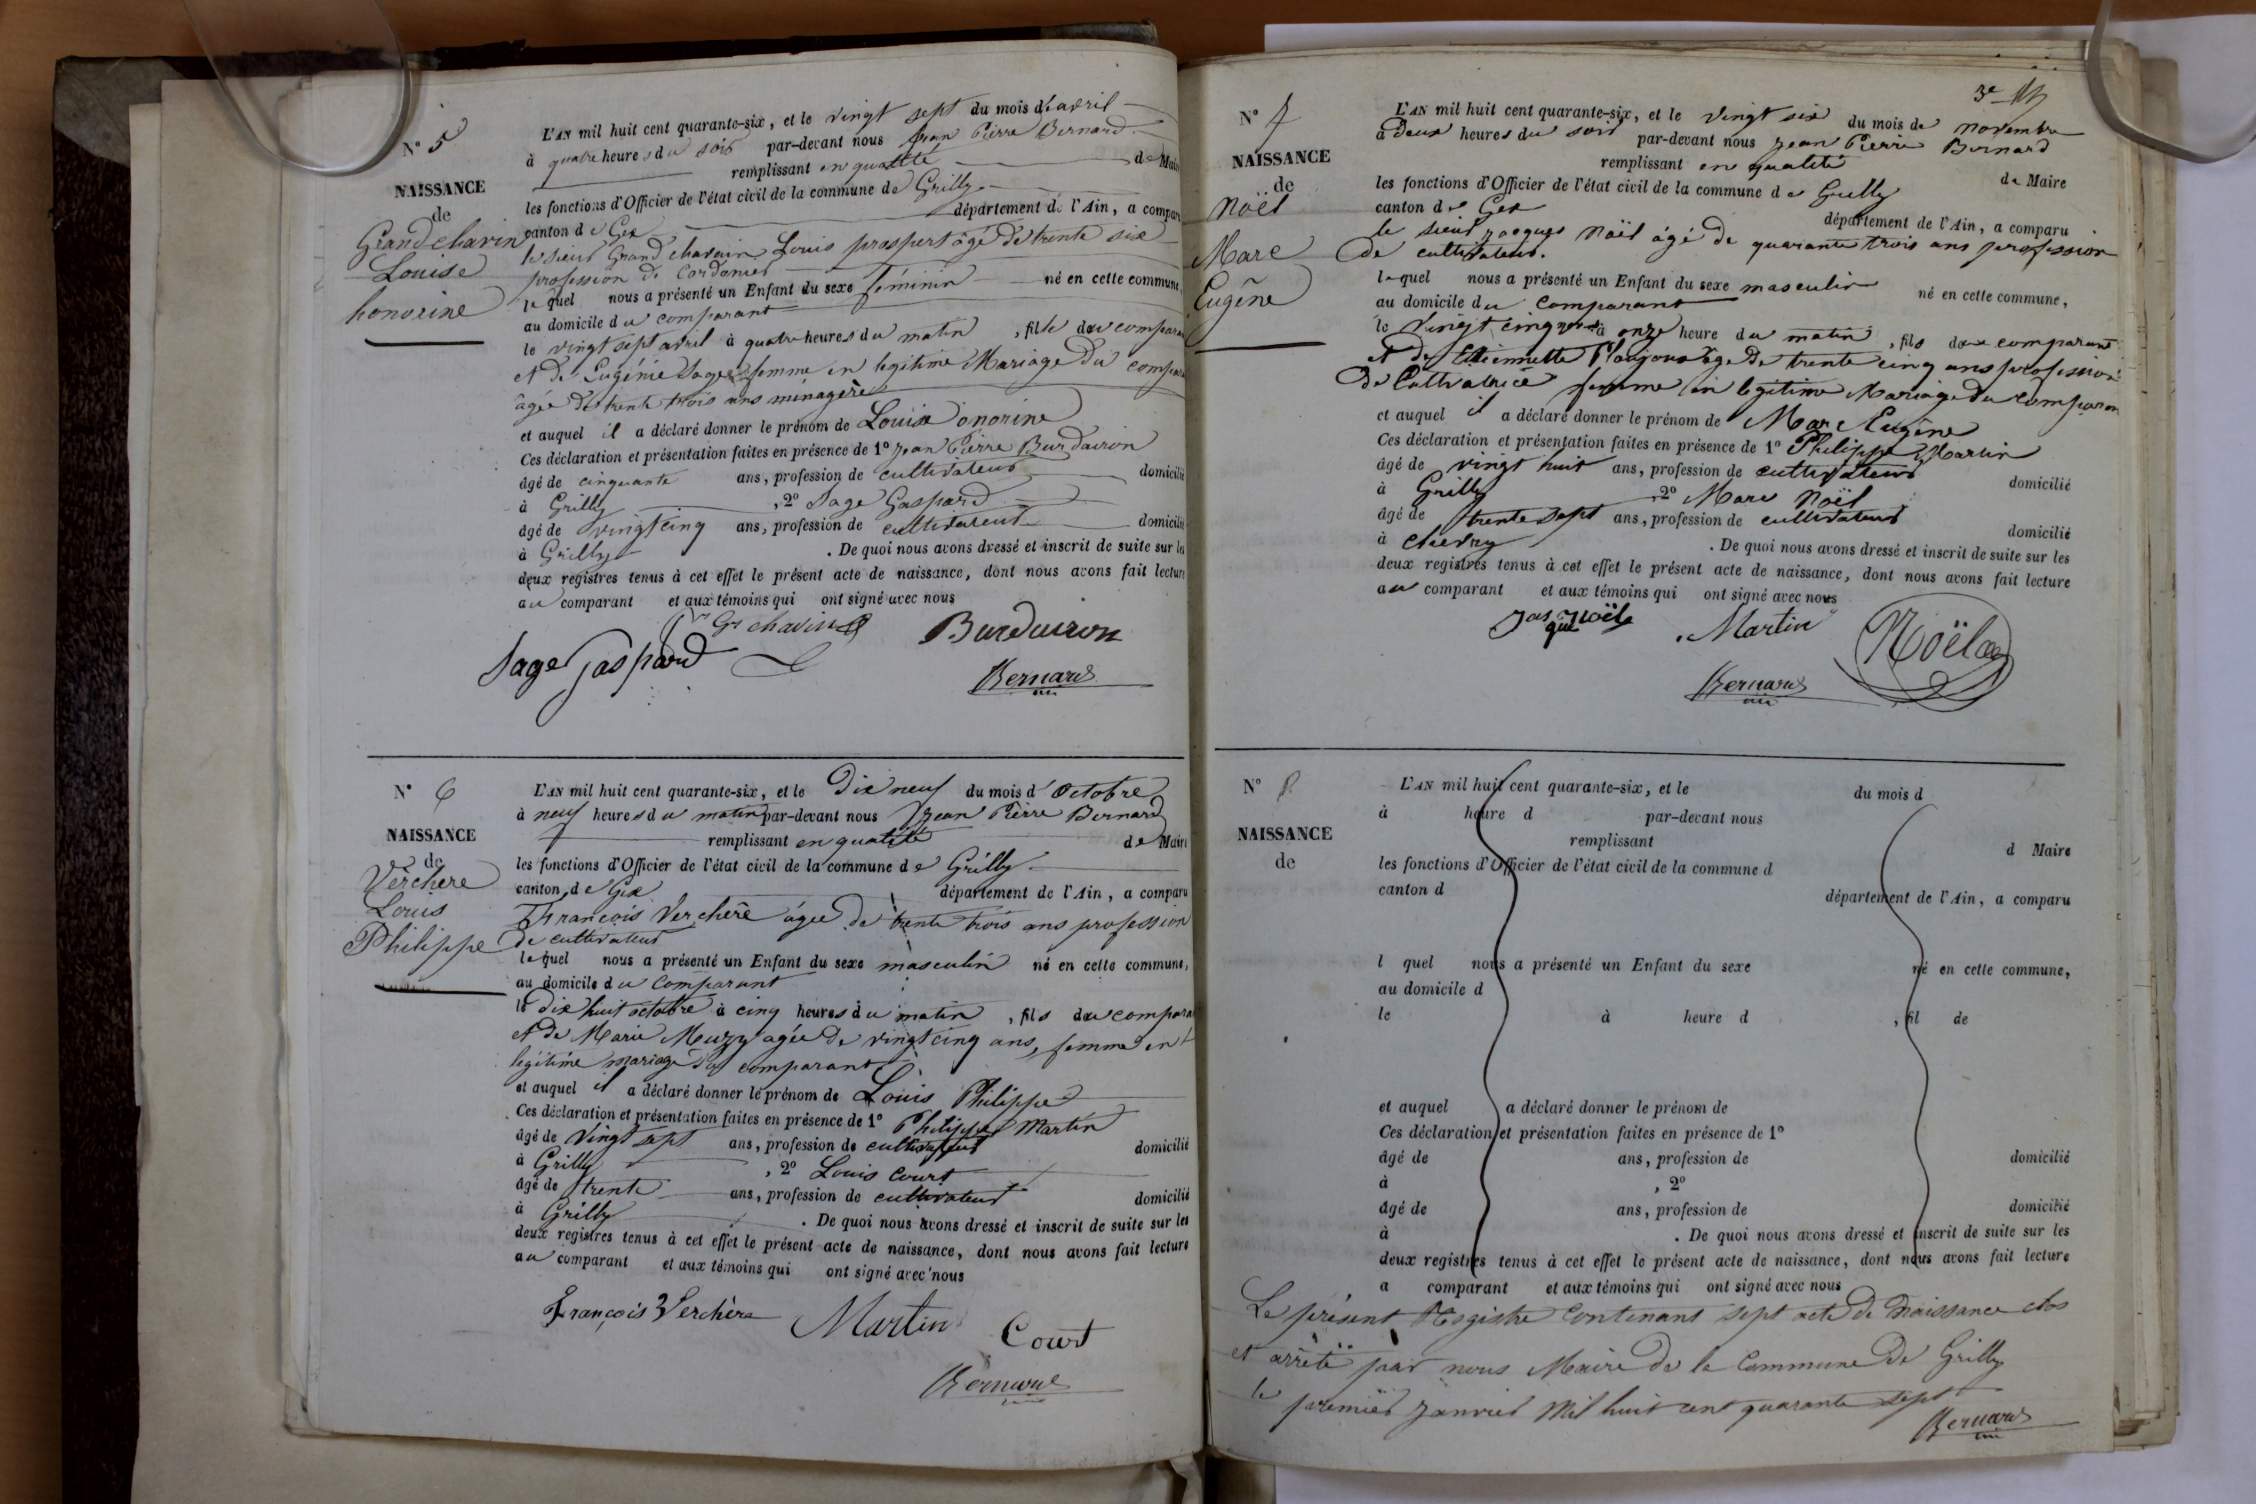 N° 5
NAISSANCE
de
Grandchavin
Louise
honorine
L'AN mil huit cent quarante-six, et le vingt sept du mois d'avril
à quatre heures du soir par-devant nous Jean Pierre Bernard
remplissant en qualité de Maire
les fonctions d'Officier de l'état civil de la commune de Grilly
canton de Gex département de l'Ain, a comparu
le sieur Grand chavin Louis prospert âgé de trente six
profession de Cordonier
lequel nous a présenté un Enfant du sexe féminin né en cette commune,
au domicile du comparant
le vingt sept avril à quatre heures du matin, fille du comparant
et de Eugénie Sage femme en legitime Mariage du compara
âgée de trente trois ans ménagère
et auquel il a déclaré donner le prénom de Louise onorine
Ces déclaration et présentation faites en présence de 1° Jean Pierre Burdairon
âgé de cinquante ans, profession de cultivateur domicilié
à Grilly, 2° Sage Gaspard
âgé de vingt cinq ans, profession de cultivateur domicilié
à Grilly. De quoi nous avons dressé et inscrit de suite sur les
deux registres tenus à cet effet le présent acte de naissance, dont nous avons fait lecture
au comparant et aux témoins qui ont signé avec nous
Gd chavin Burdairon
Sage Gaspard
Bernard
N° 6
NAISSANCE
de
Verchere
Louis
Philippe
L'AN mil huit cent quarante-six, et le Dix neuf du mois d'Octobre
à neuf heures du matin par-devant nous Jean Pierre Bernard
remplissant en qualité de Maire
les fonctions d'Officier de l'état civil de la commune de Grilly
canton de Gex département de l'Ain, a comparu
François Verchère âgée de trente trois ans profession
de cultivateur
lequel nous a présenté un Enfant du sexe masculin né en cette commune,
au domicile du comparant
le Dix huit octobre à cinq heures du matin, fils du compara
et de Marie Muzy agée de vingt cinq ans, femme en
legitime mariage du comparant
et auquel il a déclaré donner le prénom de Louis Philippe
Ces déclaration et présentation faites en présence de 1° Philippe Martin
âgé de vingt sept ans, profession de cultivateur domicilié
à Grilly, 2° Louis Court
âgé de trente ans, profession de cultivateur domicilié
à Grilly. De quoi nous avons dressé et inscrit de suite sur les
deux registres tenus à cet effet le présent acte de naissance, dont nous avons fait lecture
au comparant et aux témoins qui ont signé avec nous
François Verchère Martin Court
Bernard
3e
N° 7
NAISSANCE
de
Noël
Marc
Eugêne
L'AN mil huit cent quarante-six, et le vingt six du mois de novembre
à deux heures du soir par-devant nous Jean Pierre Bernard
remplissant en qualité de Maire
les fonctions d'Officier de l'état civil de la commune de Grilly
canton de Gex département de l'Ain, a comparu
le sieur Jacques Noël âgé de quarante trois ans profession
de cultivateur.
lequel nous a présenté un Enfant du sexe masculin né en cette commune,
au domicile du comparant
le vingt cinq à onze heure du matin, fils du comparant
et de Etiennette âge de trente cinq ans profession
de Cultivatrice femme en legitime Mariage du comparan
et auquel il a déclaré donner le prénom de Marc Eugêne
Ces déclaration et présentation faites en présence de 1° Philippe Martin
âgé de vingt huit ans, profession de cultivateur domicilié
à Grilly, 2° Marc Noël
âgé de trente sept ans, profession de cultivateur domicilié
à chevry. De quoi nous avons dressé et inscrit de suite sur les
deux registres tenus à cet effet le présent acte de naissance, dont nous avons fait lecture
au comparant et aux témoins qui ont signé avec nous
Jasque Noël Martin Noël
Bernard
N° 8
NAISSANCE
de
L'AN mil huit cent quarante-six, et le du mois d
à heure d par-devant nous
remplissant d Maire
les fonctions d'Officier de l'état civil de la commune d
canton d département de l'Ain, a comparu
l quel nous a présenté un Enfant du sexe né en cette commune,
au domicile d
le à heure d, fil de
et auquel a déclaré donner le prénom de
Ces déclaration et présentation faites en présence de 1°
âgé de ans, profession de domicilié
à, 2°
âgé de ans, profession de domicilié
à. De quoi nous avons dressé et inscrit de suite sur les
deux registres tenus à cet effet le présent acte de naissance, dont nous avons fait lecture
a comparant et aux témoins qui ont signé avec nous
Le présent Registre Contenant sept acte de Naissance clos
et arrêté par nous Maire de la Commune de Grilly
le premier Janvier Mil huit cent quarante sept
Bernard